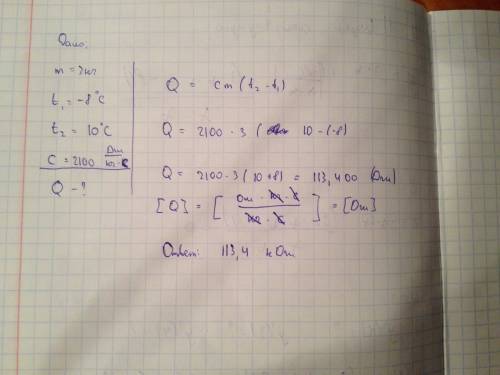 Дано:
m = 3кг
t₁ = -8°C
t₂ = 10°C
C = 2100 Дж/кг·°C
Q - ?
Q = cm(t₂-t₁)
Q = 2100 · 3 ( 10-(-8)
Q = 2100·3(10+8) = 113,400 (Дж)
[Q] = [Дж · кг · °C / кг · °C] = [Дж]
Ответ: 113,4 кДж